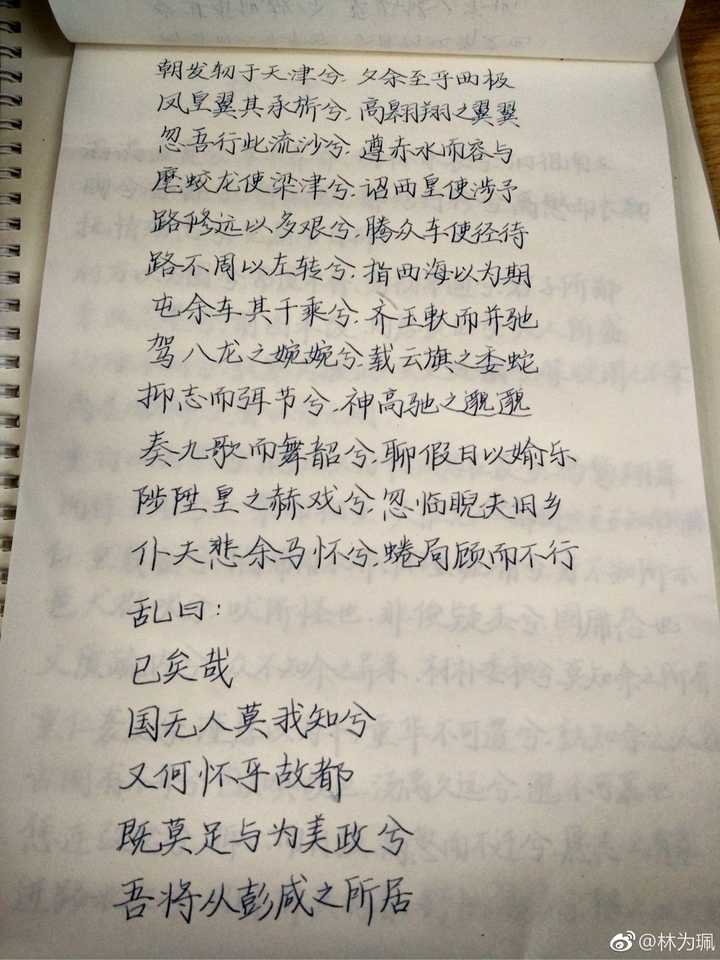 朝发轫于天津兮,夕余至乎西极
凤皇翼其承旂兮,高翱翔之翼翼
忽吾行此流沙兮,遵赤水而容与
麾蛟龙使梁津兮,诏西皇使涉予
路修远以多艰兮,腾众车使径待
路不周以左转兮,指西海以为期
屯余车其千乘兮,齐玉轪而并驰
驾八龙之婉婉兮,载云旗之委蛇
抑志而弭节兮,神高驰之邈邈
奏九歌而舞韶兮,聊假日以媮乐
陟陞皇之赫戏兮,忽临睨夫旧乡
仆夫悲余马怀兮,蜷局顾而不行
乱曰:
已矣哉
国无人莫我知兮
又何怀乎故都
既莫足与为美政兮
吾将从彭咸之所居
@林为珮